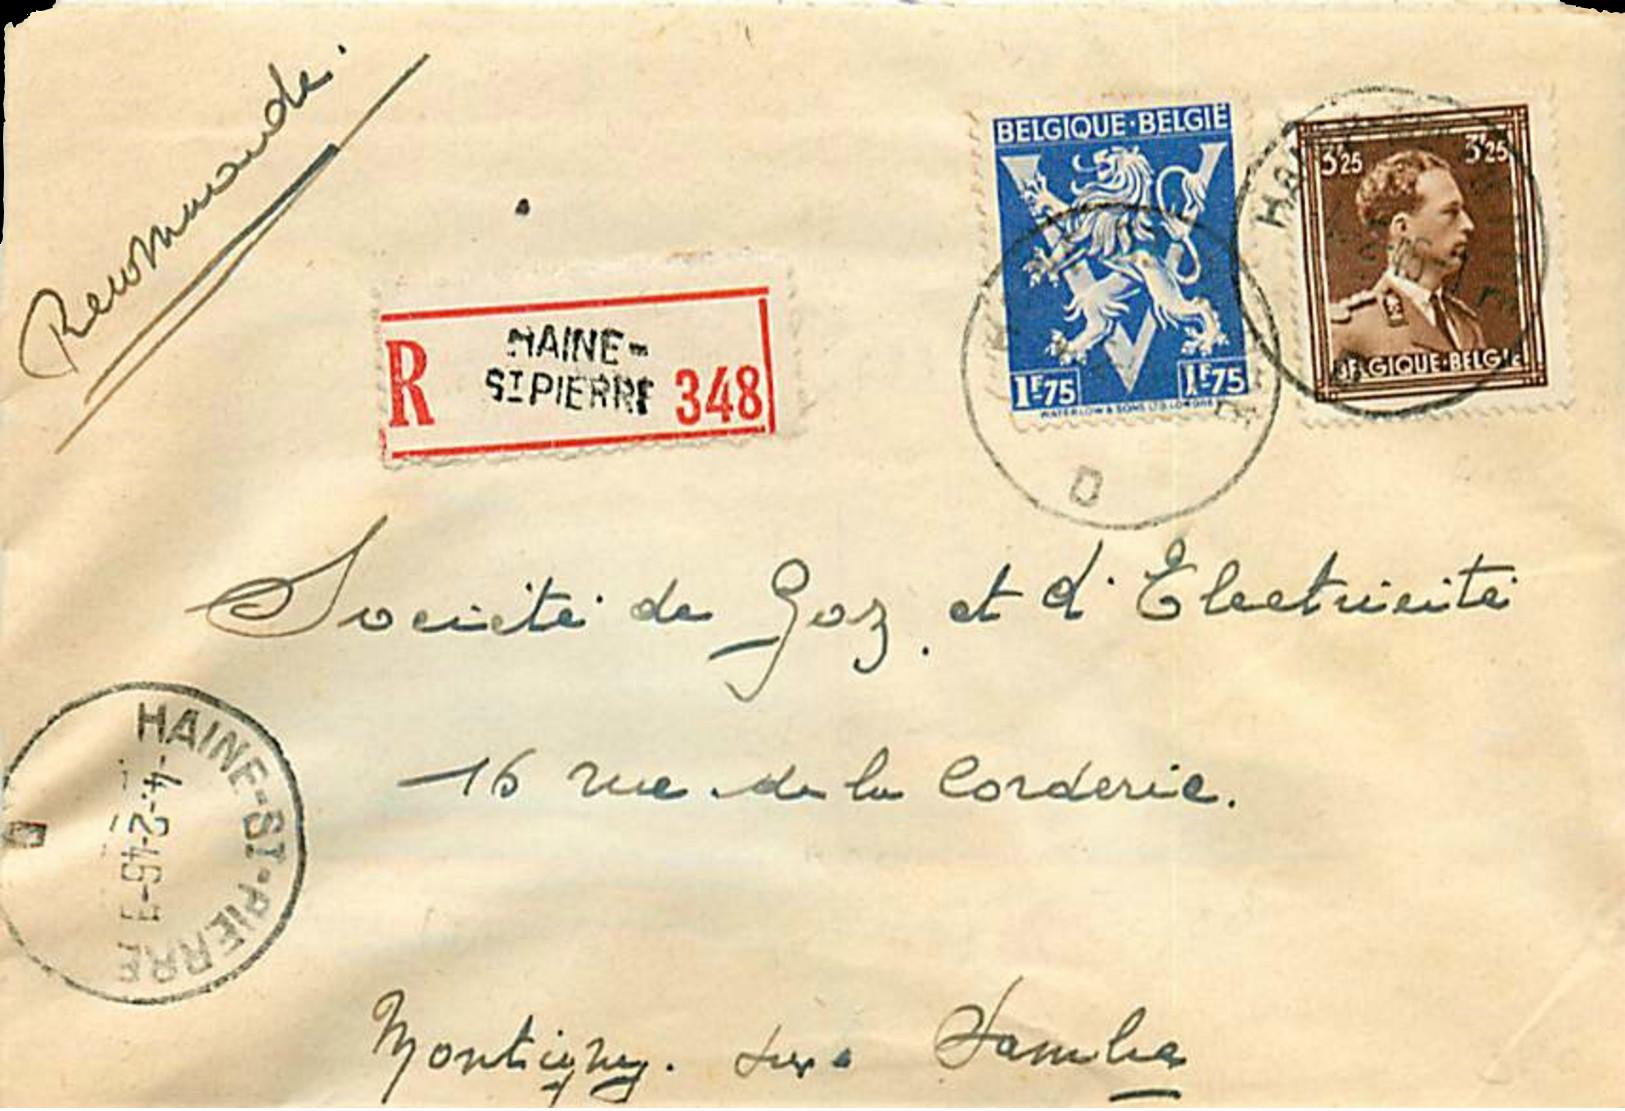 Recommandé.
BELGIQUE·BELGIE
1F75
1F75
WATERLOW & SONS LTD. LONDRES
3F25
3F25
BELGIQUE·BELGIE
R
HAINE-
ST PIERRE
348
D
Société de Gaz. et d'Électricité
16 rue de la Corderie.
HAINE-ST-PIERRE
-4-2-46-
D
Montigny. sur. Sambre